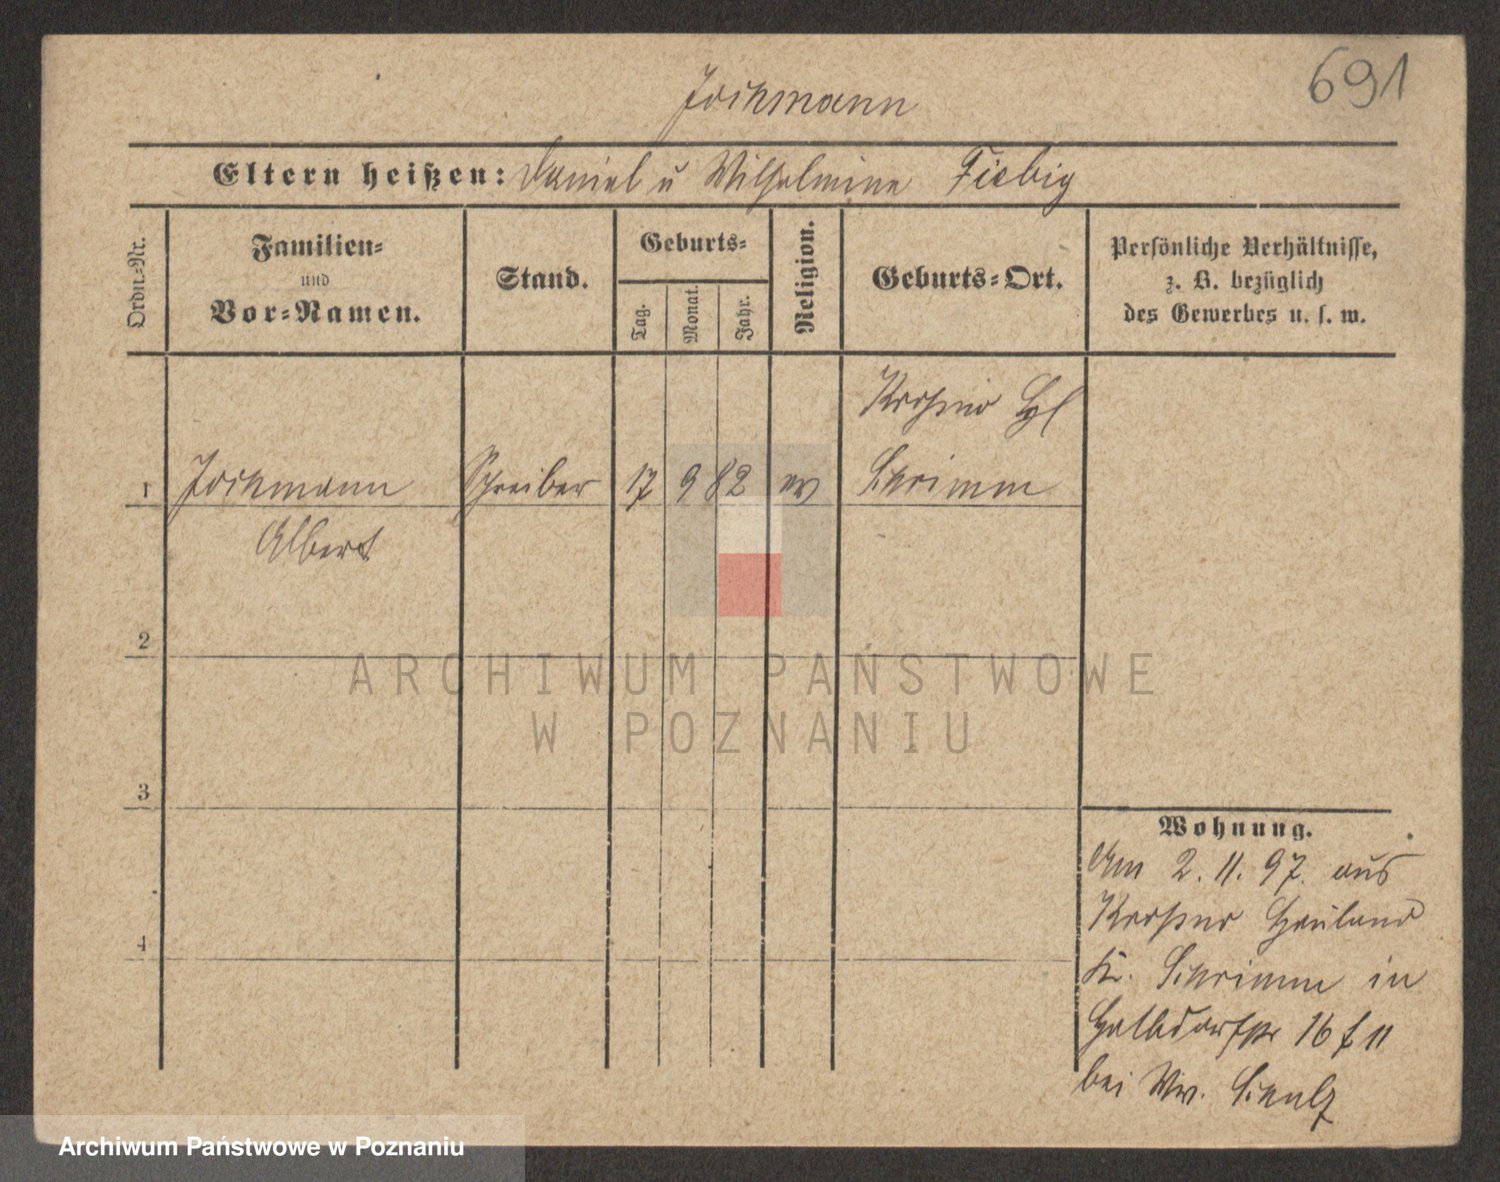 691
Jochmann
Eltern heißen: Daniel u Wilhelmine Fiebig
Ordn.=Nr.
Familien=
und
Vor=Namen.
Stand.
Geburts=
Tag.
Monat.
Jahr.
Religion.
Geburts=Ort.
Persönliche Verhältnisse,
z. B. bezüglich
des Gewerbes u. s. w.
Krosno Hl
1 Jochmann Schreiber 17 9 82 ev Schrimm
Albert
2
3
4
Wohnung.
Am 2. 11. 97. aus
Krosno Hauland
Kr. Schrimm in
Halbdorfstr 16 f 11
bei Ww. Schulz
ARCHIWUM PAŃSTWOWE
W POZNANIU
Archiwum Państwowe w Poznaniu